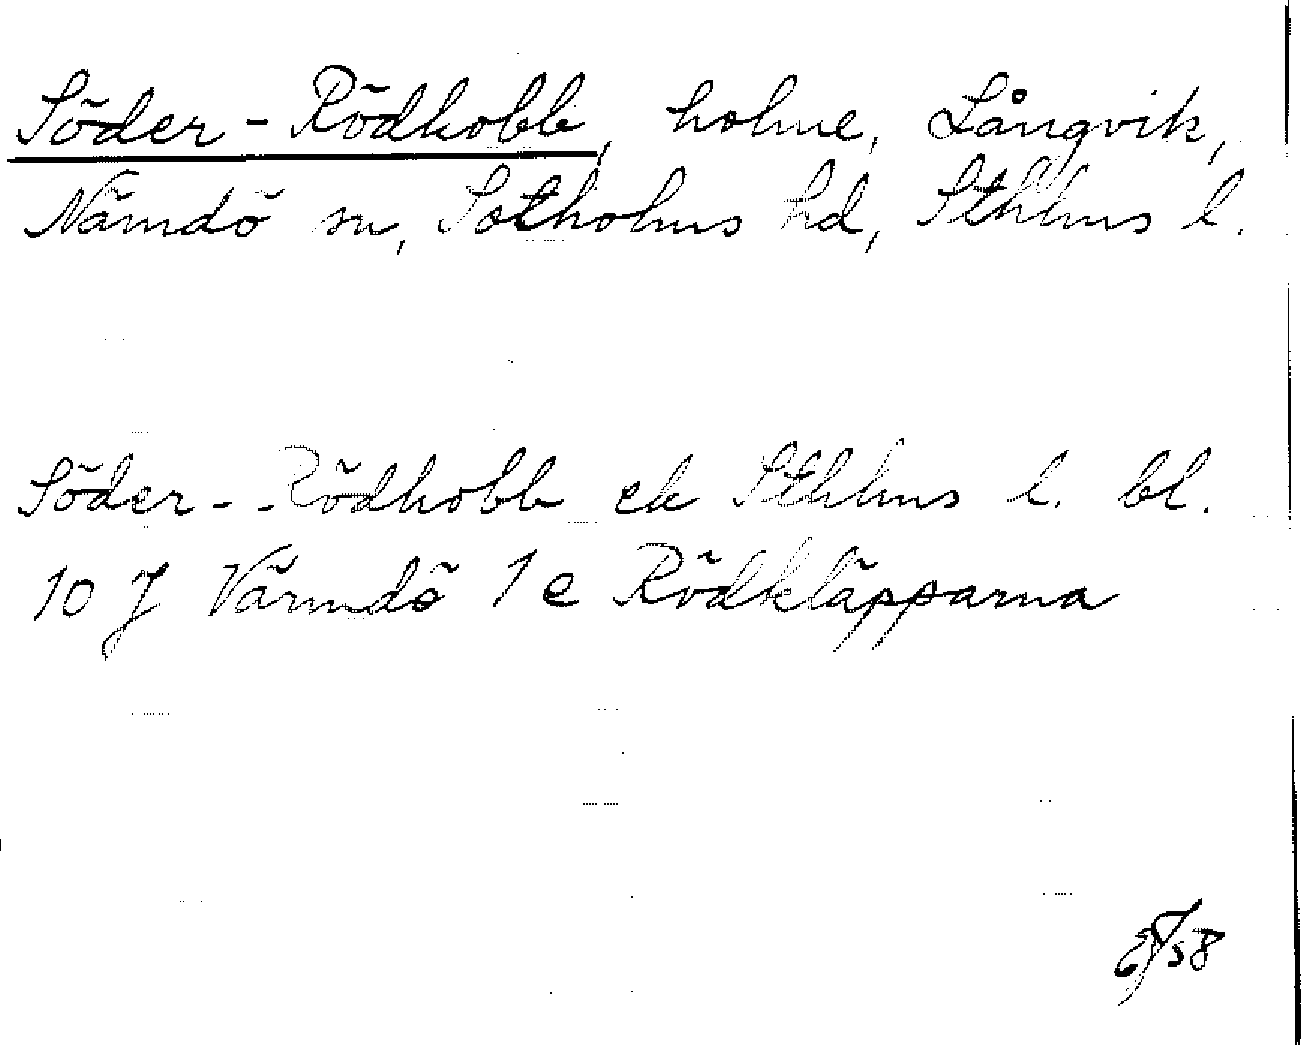 Söder-Rödkobb, holme, Långvik,
Nämdö sn, Sotholms hd, Sthlms l.
Söder-Rödkobb ek Sthlms l. bl.
10 J Värmdö 1 e Rödkläpparna
58